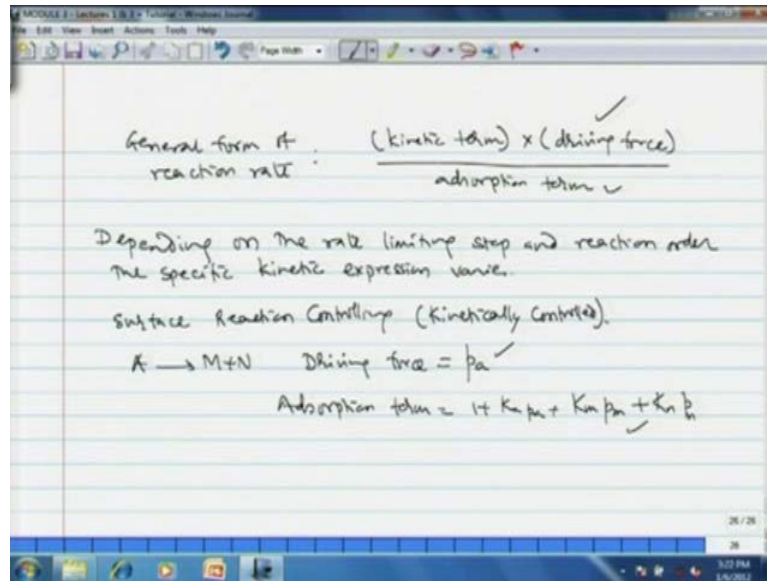 MODULE 3 - Lectures 1 & 3 + Tutorial - Windows Journal
File Edit View Insert Actions Tools Help
Page Width
General form of (kinetic term) x (driving force)
reaction rate : adsorption term
Depending on the rate limiting step and reaction order
the specific kinetic expression varie.
Surface Reaction Controlling (Kinetically Controlled).
A → M+N Driving force = pa
Adsorption term = 1+ Ka pa + Km pm + Kn pn
26 / 26
26
3:22 PM
1/6/2012